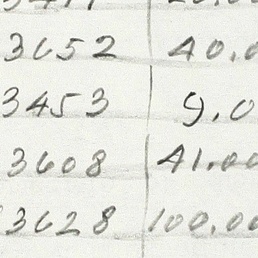 3652 40.0
3453 9.0
3608 41.00
3628 100.00